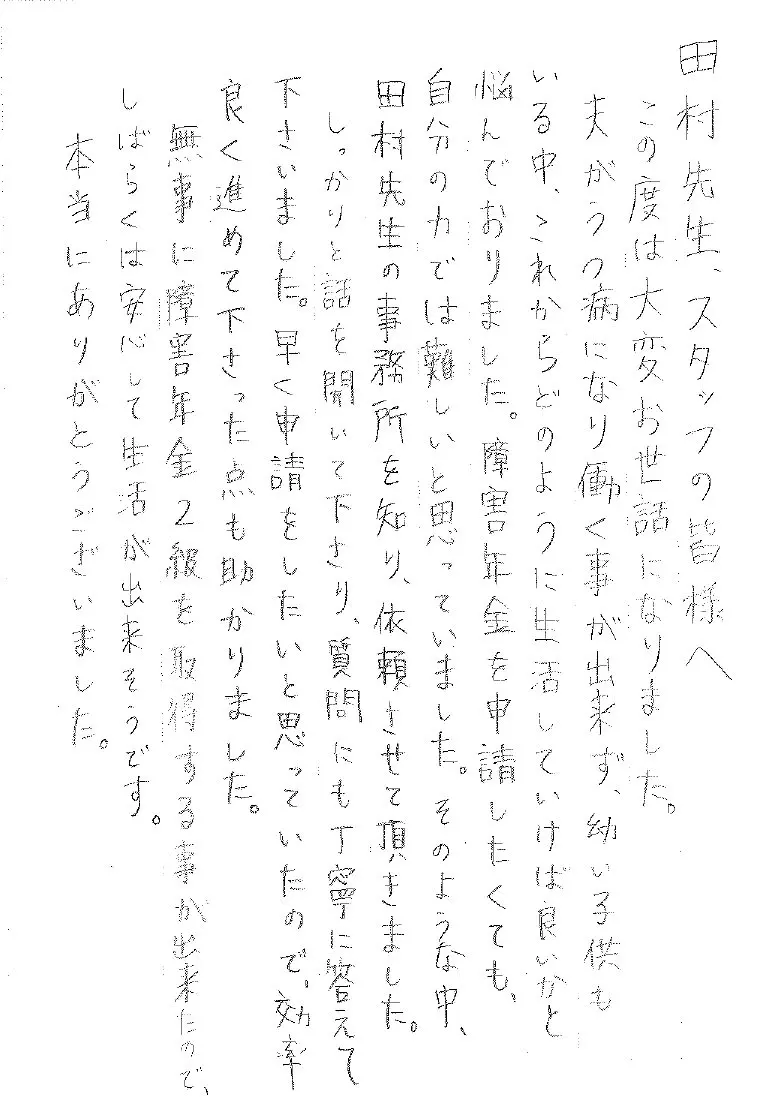 田村先生、スタッフの皆様へ
この度は大変お世話になりました。
夫がうつ病になり働く事が出来ず、幼い子供も
いる中、これからどのように生活していけば良いかと
悩んでおりました。障害年金を申請したくても、
自分の力では難しいと思っていました。そのような中、
田村先生の事務所を知り、依頼させて頂きました。
しっかりと話を聞いて下さり、質問にも丁寧に答えて
下さいました。早く申請をしたいと思っていたので、効率
良く進めて下さった点も助かりました。
無事に障害年金2級を取得する事が出来たので、
しばらくは安心して生活が出来そうです。
本当にありがとうございました。